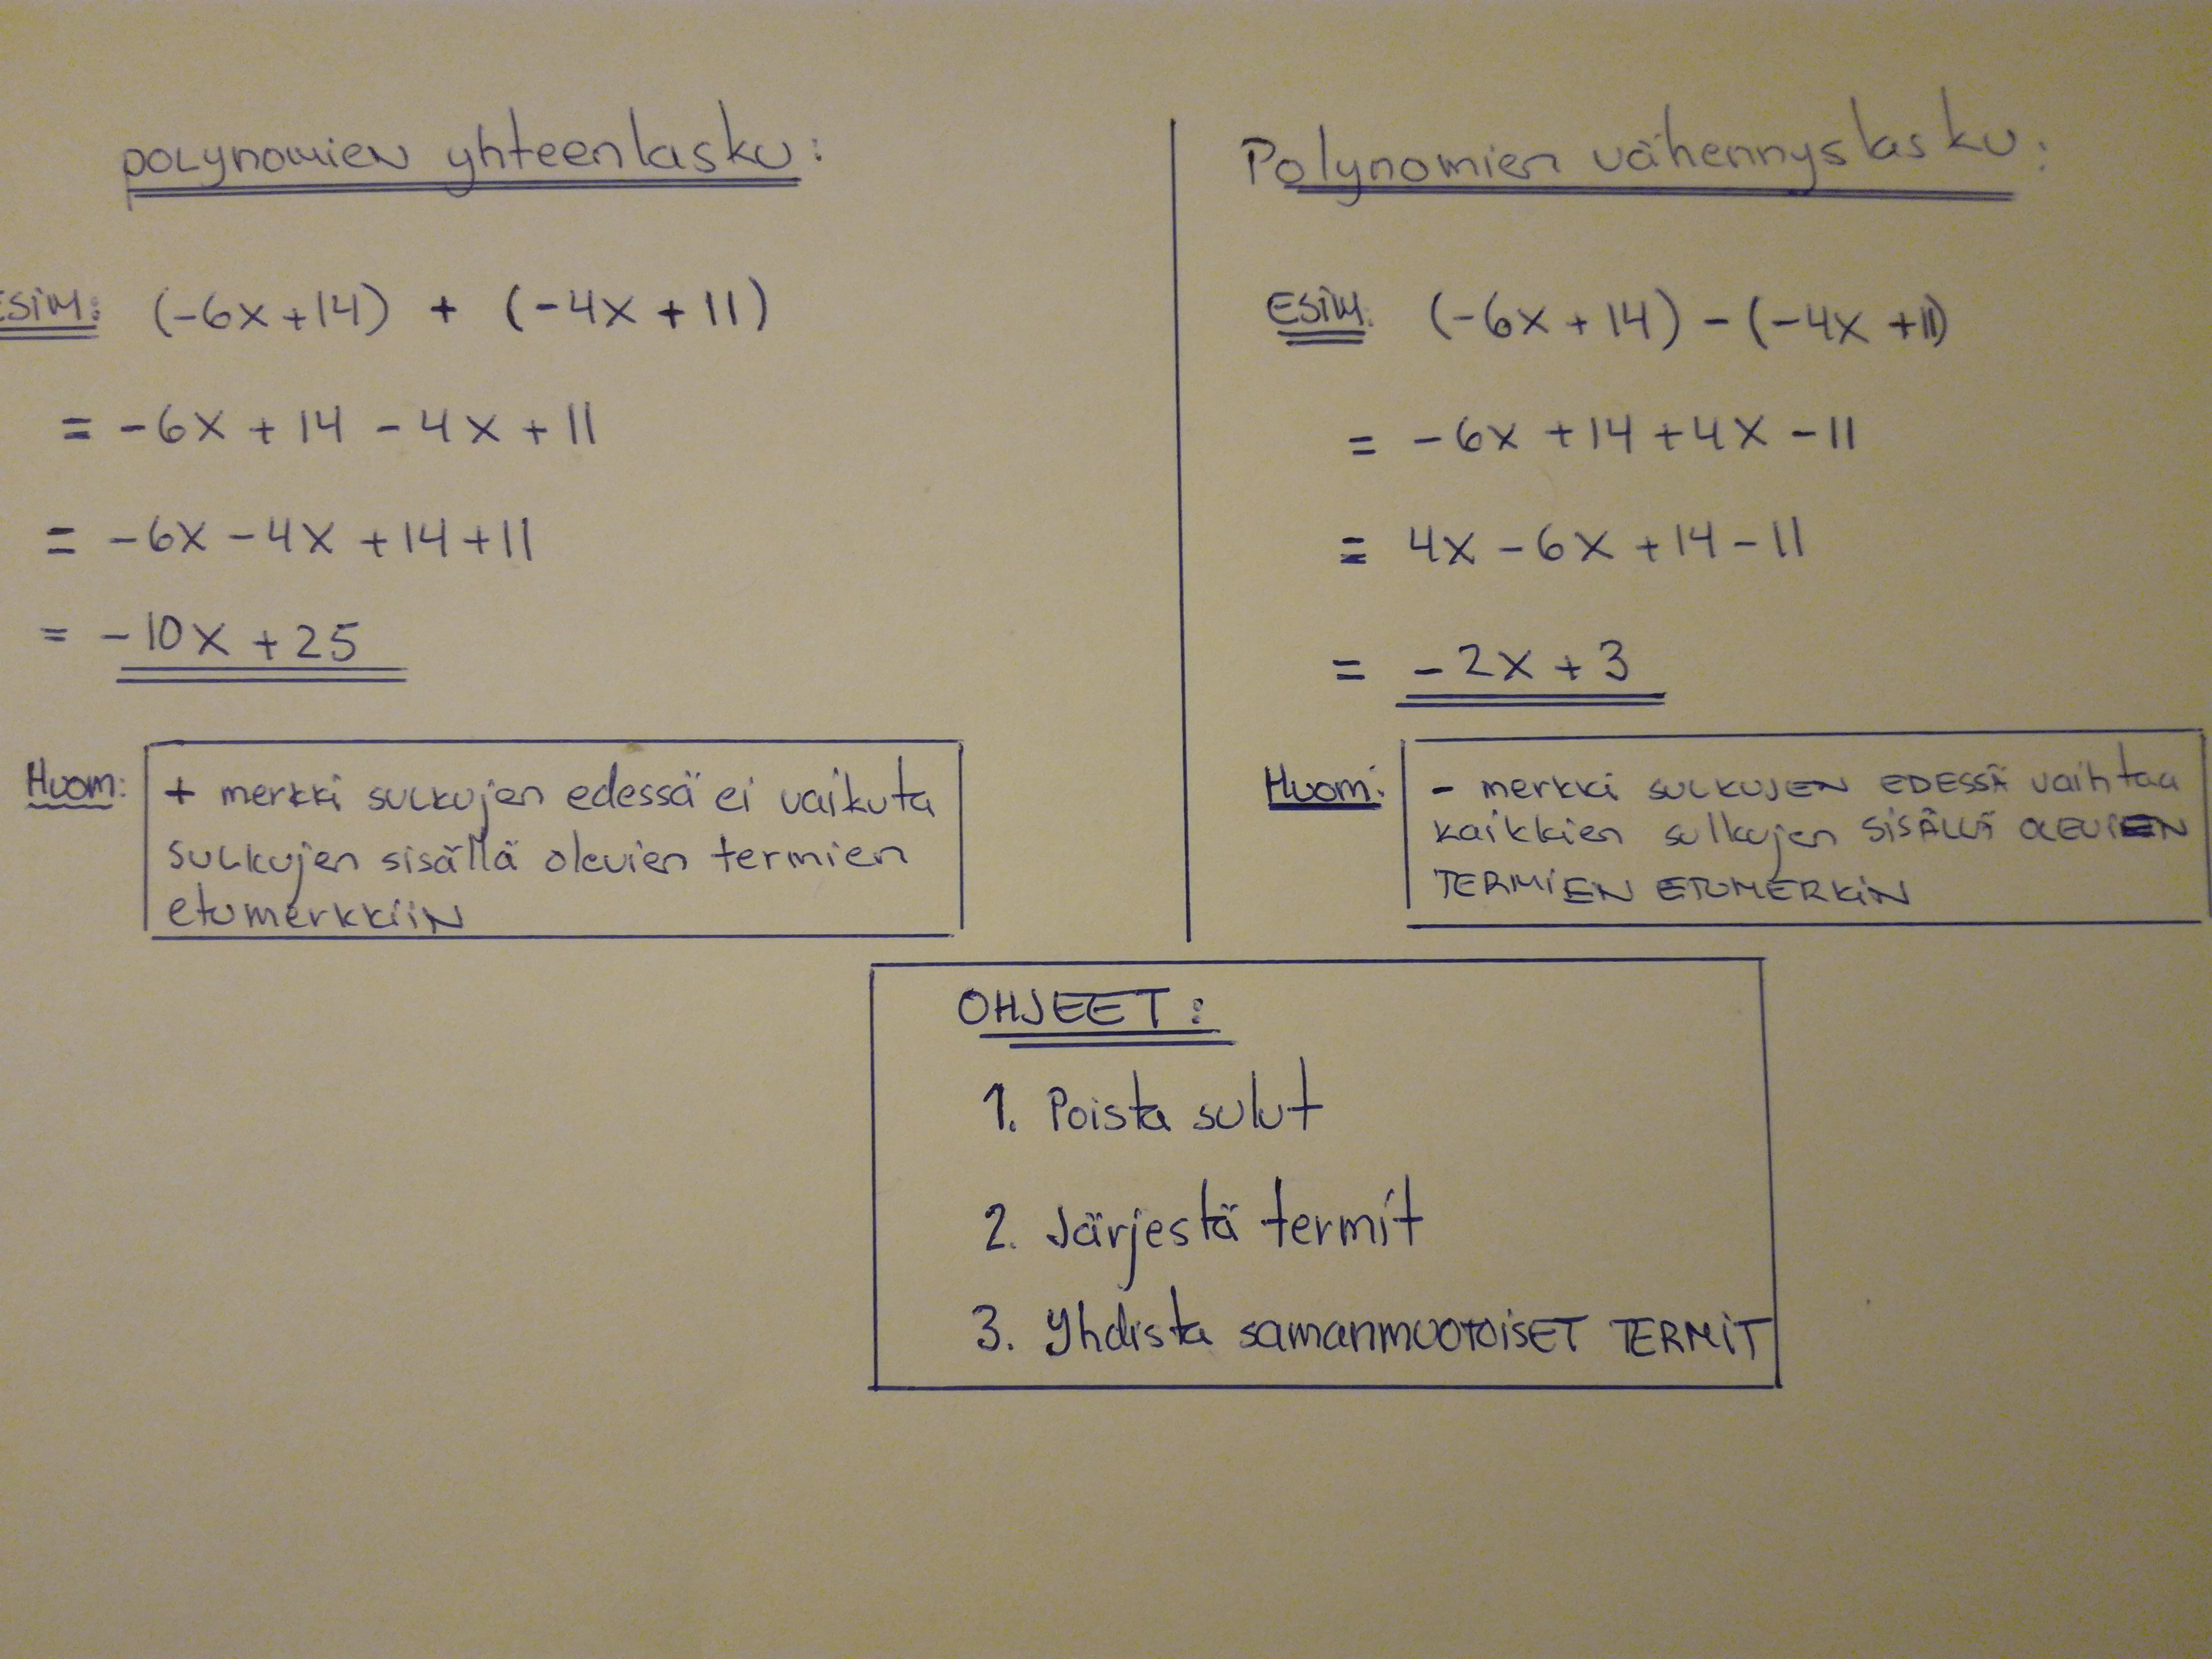 polynomien yhteenlasku:
ESIM: (-6x+14) + (-4x + 11)
= -6x + 14 - 4x + 11
= -6x - 4x + 14 + 11
= -10x + 25
Huom: + merkki sulkujen edessä ei vaikuta
sulkujen sisällä olevien termien
etumerkkiin
Polynomien vähennyslasku:
ESIM: (-6x + 14) - (-4x + 11)
= -6x + 14 + 4x - 11
= 4x - 6x + 14 - 11
= -2x + 3
Huom: - merkki SULKUJEN EDESSÄ vaihtaa
kaikkien sulkujen SISÄLLÄ OLEVIEN
TERMIEN ETUMERKIN
OHJEET:
1. Poista sulut
2. Järjestä termit
3. Yhdista samanmuotoisET TERMIT